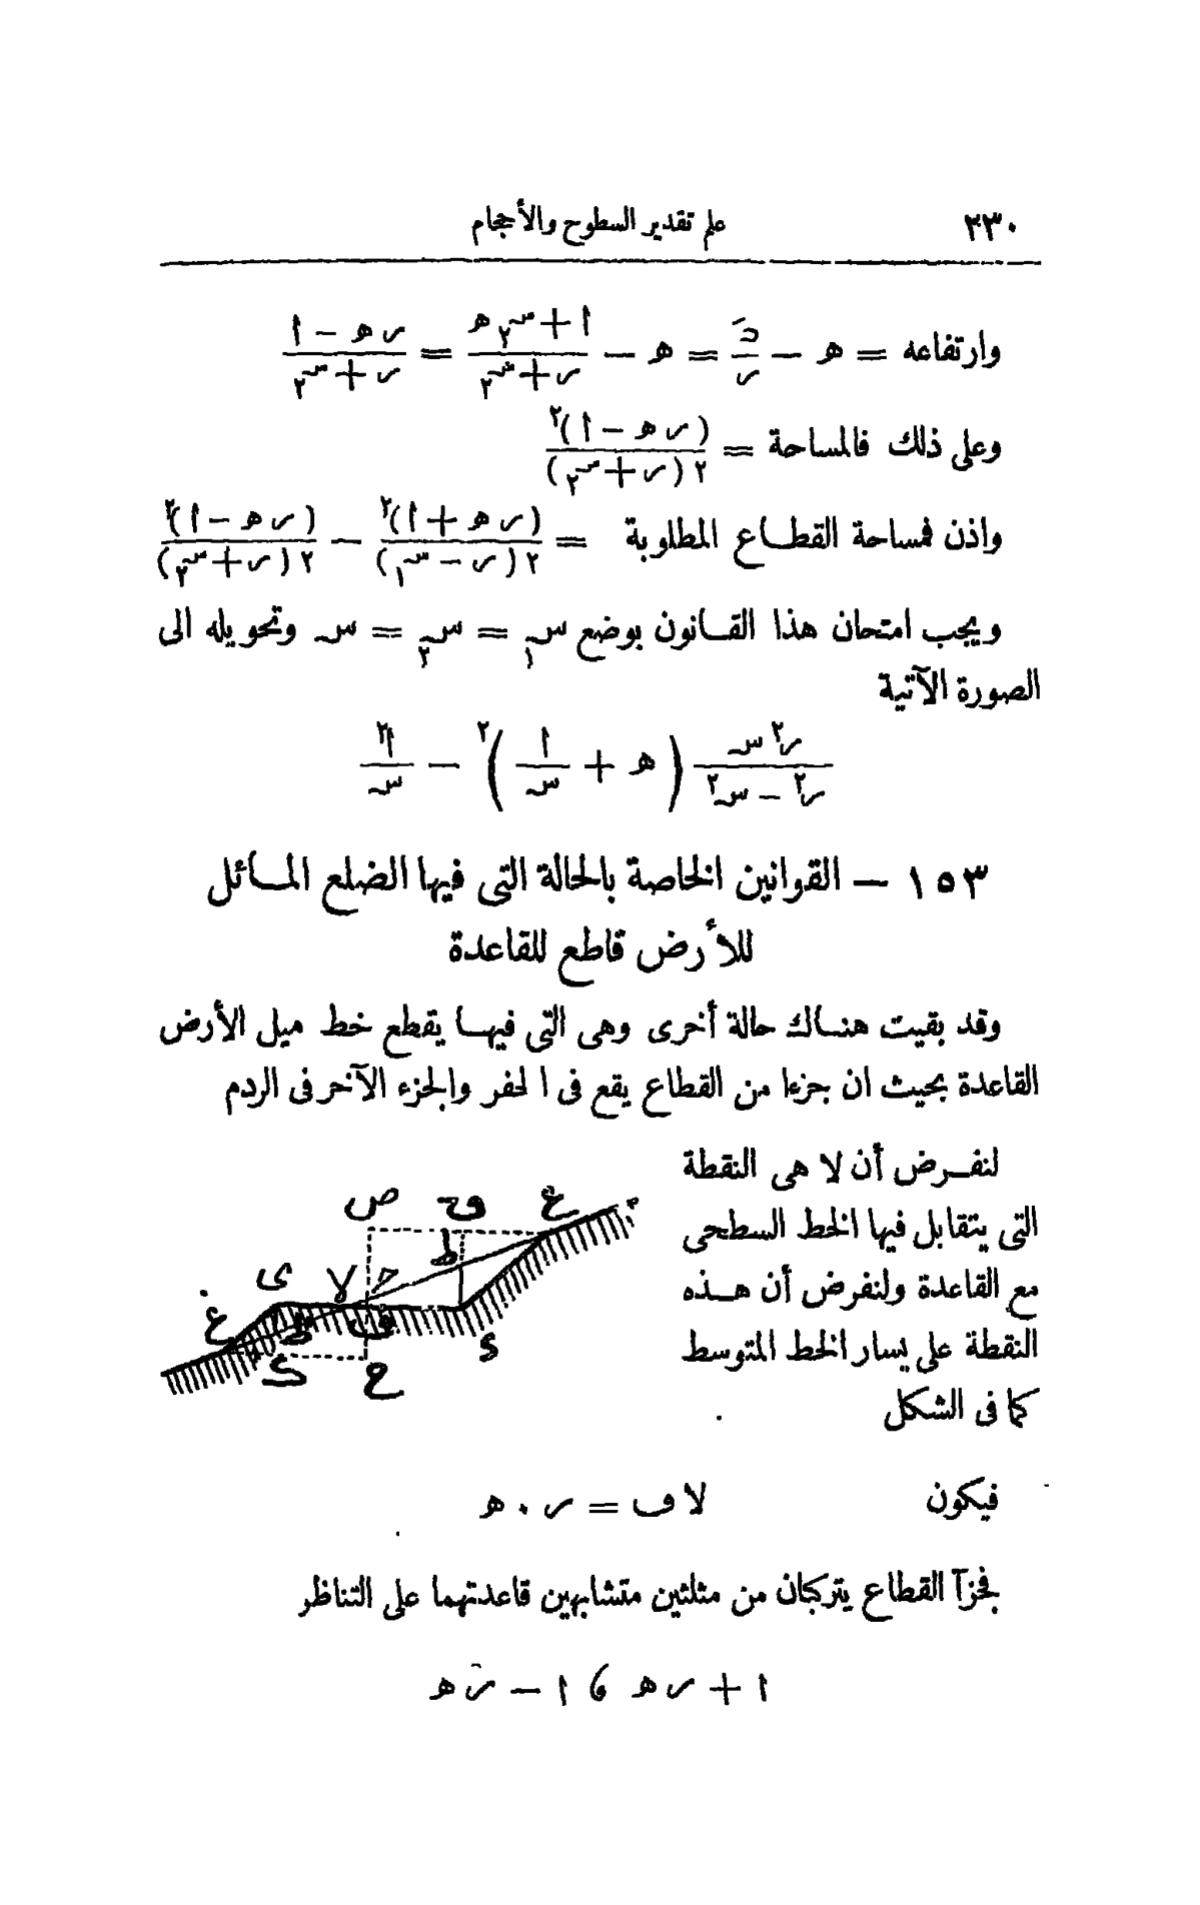 ٢٣٠ علم تقدير السطوح والأحجام
وارتفاعه = هـ − = هـ − (ا + س٢ هـ) / (ر + س٢) = (ر هـ − ا) / (ر + س٢)
وعلى ذلك فالمساحة = (ر هـ − ا)٢ / ٢ (ر + س٢)
واذن فمساحة القطاع المطلوبة = (ر هـ + ا)٢ / ٢ (ر − س١) − (ر هـ − ا)٢ / ٢ (ر + س٢)
ويجب امتحان هذا القانون بوضع س١ = س٢ = س وتحويله الى
الصورة الآتية
ر٢ س / (ر٢ − س٢) (هـ + ا / س)٢ − ا٢ / س
١٥٣ − القوانين الخاصة بالحالة التى فيها الضلع المائل
للأرض قاطع للقاعدة
وقد بقيت هناك حالة أخرى وهى التى فيها يقطع خط ميل الأرض
القاعدة بحيث ان جزءا من القطاع يقع فى الحفر والجزء الآخر فى الردم
لنفرض أن لا هى النقطة
التى يتقابل فيها الخط السطحى
مع القاعدة ولنفرض أن هذه
النقطة على يسار الخط المتوسط
كما فى الشكل
ص ق غ
ط
ى لا ح
غَ ف
ك ع د
فيكون لا ف = ر ٠ هـ
فجزآ القطاع يتركبان من مثلثين متشابهين قاعدتهما على التناظر
ا + ر هـ ، ا − ر هـ